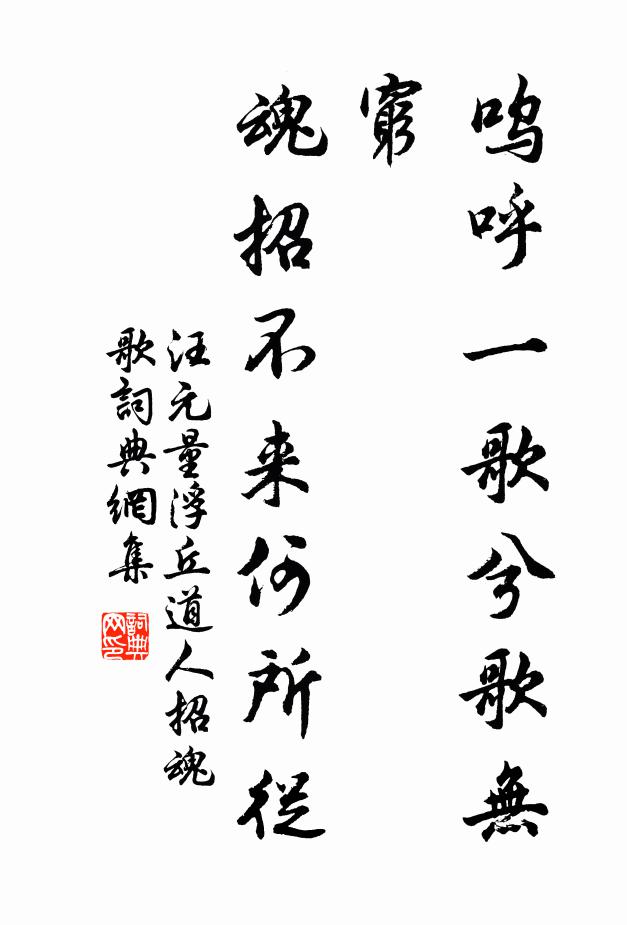 嗚呼一歌兮歌無
窮
魂招不来何所從
汪元量浮丘道人招魂
歌詞典網集
詞典
网印